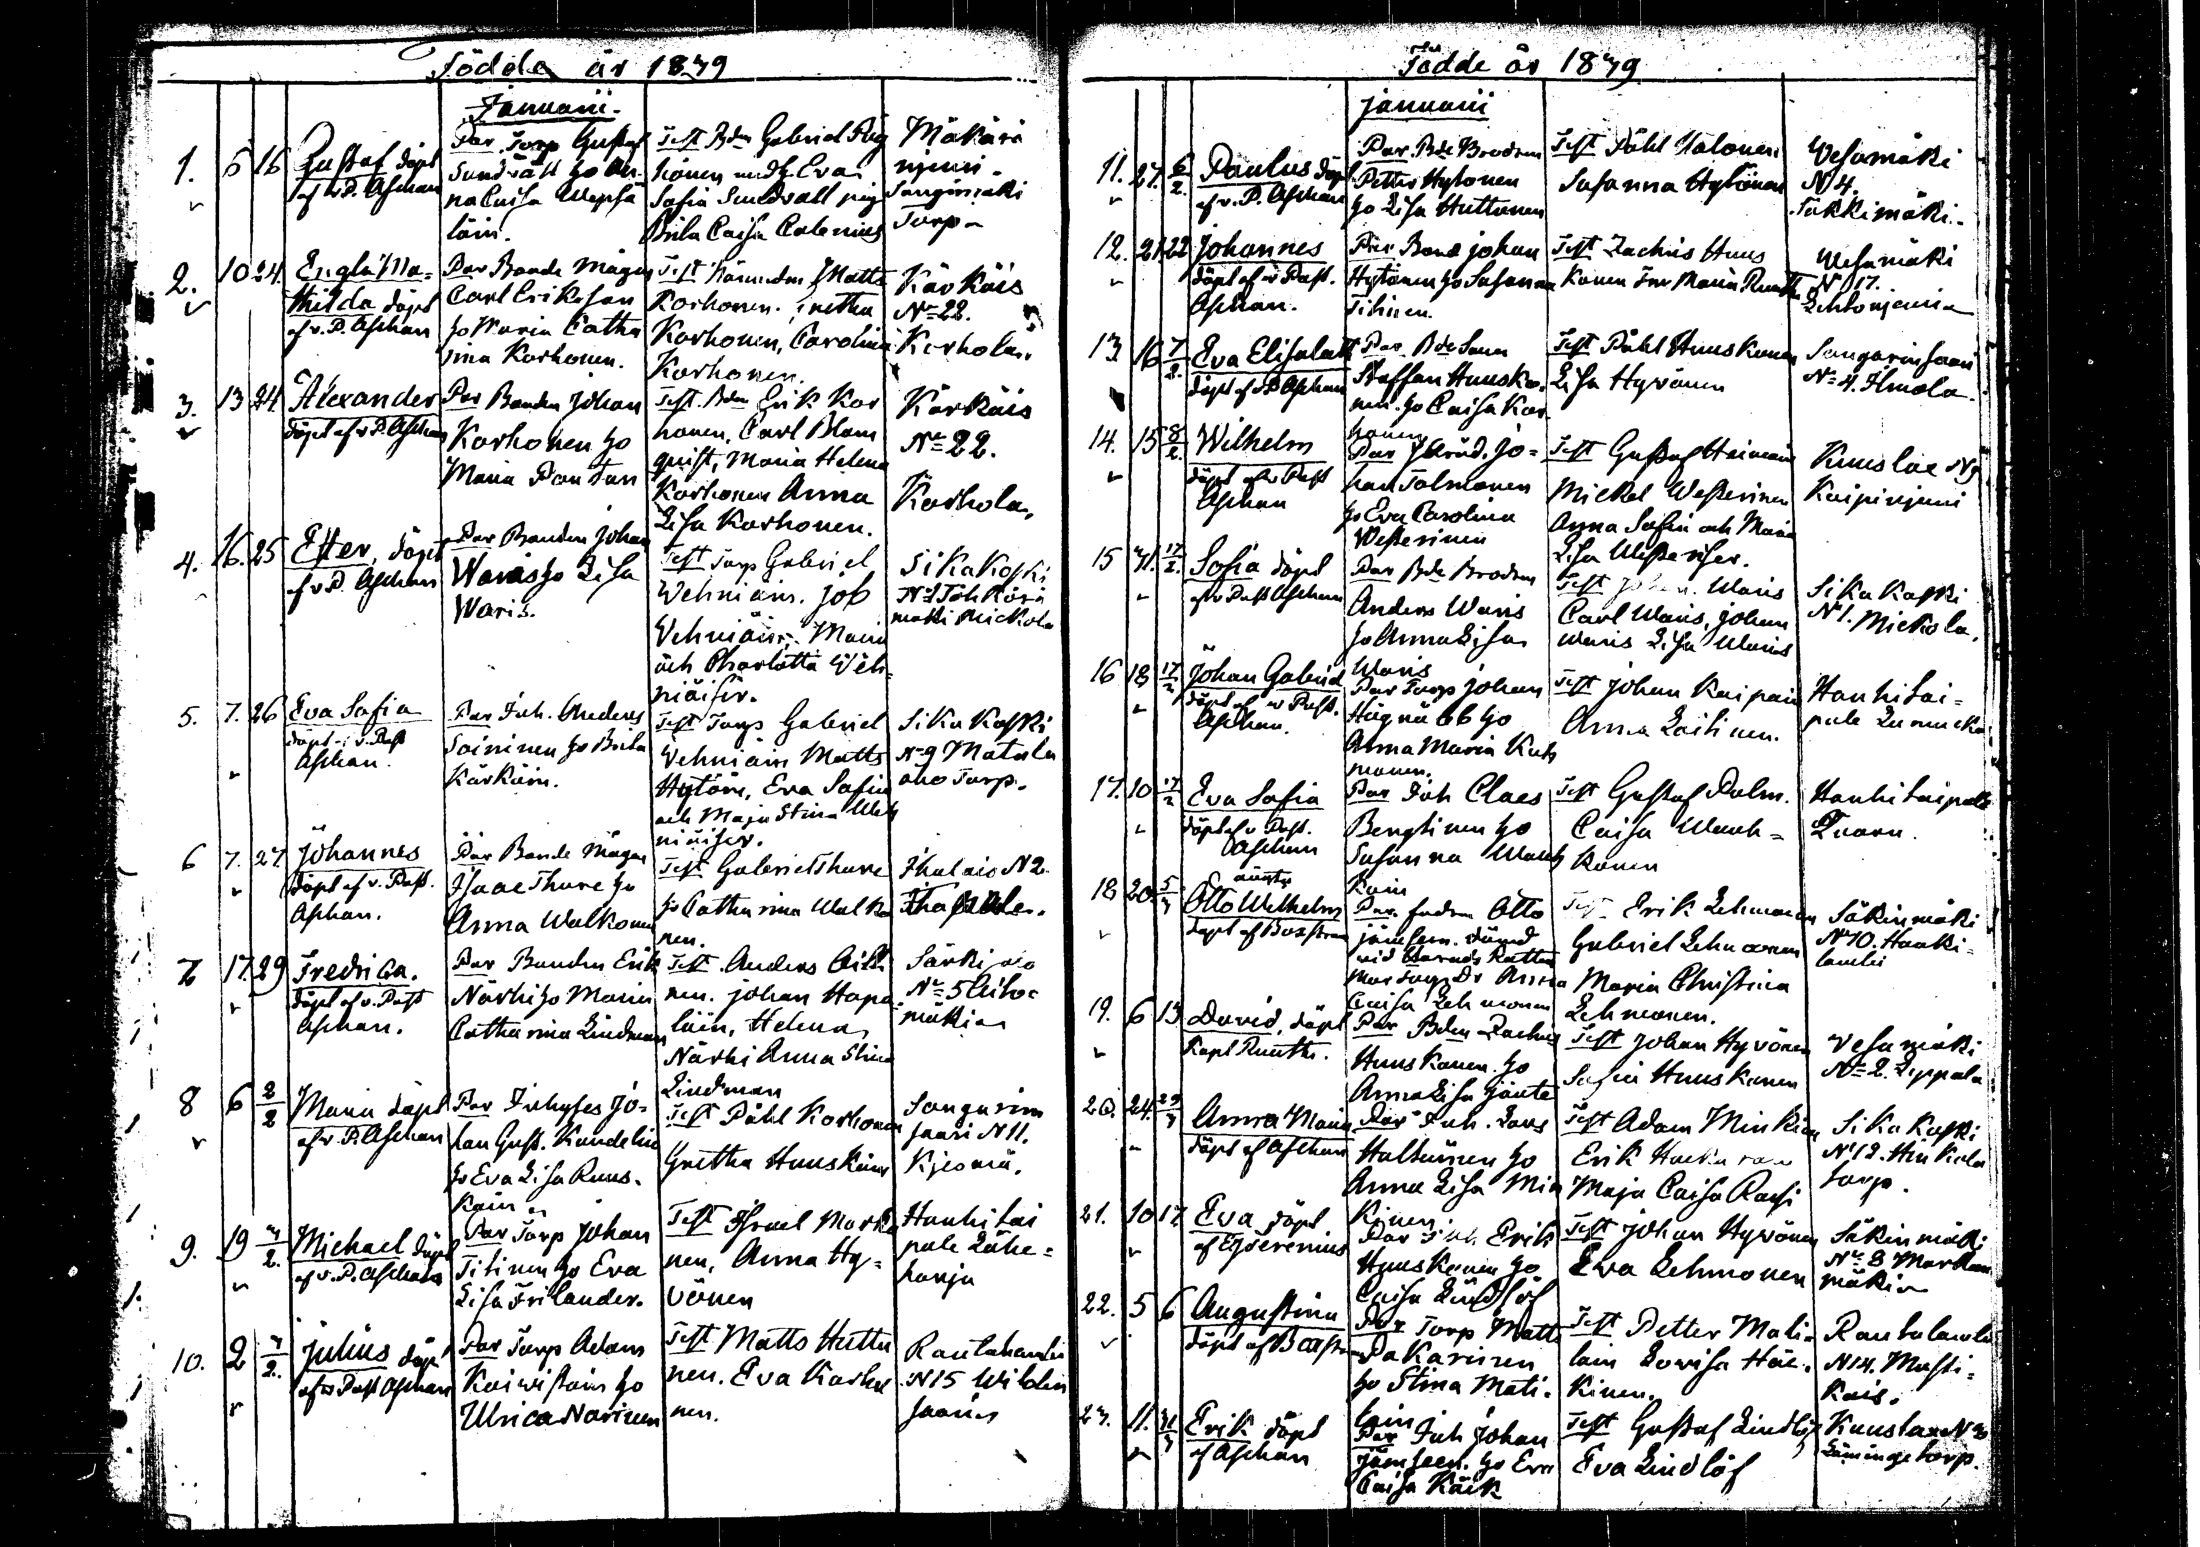 Födda år 1839
Januarii.
1. 5 16 Gustaf döpt
af v. P. Aschan
Par Torp Gustaf
Sundvall ho An-
na Caisa Wepsä
läin.
Test Bdn Gabriel Pöy
hönen und. Eva
Safia Sundvall pig
Brita Caisa Calenius
Mäkärä
njemi.
Sanginmäki
Torp
2. 10 24. Engla Ma-
thilda döpt
af v. P. Aschan
Par Bonde Mågen
Carl Eriksson
ho Maria Catha
rina Korhonen.
Test Matts
Korhonen. Gretha
Korhonen, Carolina
Korhonen.
Kärkäis
No 22.
Korhola.
3. 13 24 Alexander
döpt af v. P. Aschan
Par Bonden Johan
Korhonen ho
Maria Pautan
Test. Bdn Erik Kor
honen, Carl Blom
quist, Maria Helena
Korhonen Anna
Lisa Korhonen.
Kärkäis
No 22.
Korhola,
4. 16. 25 Ester, döpt
af v. P. Aschan
Par Bonden Johan
Waris ho Lisa
Waris.
Test Torp Gabriel
Wehniäin. Job
Vehniäin, Maria
och Charlotta Weh-
niäiser.
Sikakoski
No 1
mäki Mickola
5. 7. 26 Eva Safia
döpt af v. Past
Aschan.
Par Inh. Anders
Soininen ho Brita
Kärkäin.
Test Torp Gabriel
Vehniäin Matts
Hytön, Eva Safia
och Maja Stina Weh
niäiser.
Sika Koski
No 9 Matala
aho Torp.
6 7. 27 Johannes
döpt af v. Past.
Aschan.
Par Bonde Mågen
Isaac Thure ho
Anna Walkonen
Test Gabriel Thure
ho Catharina Walko
nen.
Ihalais N 2.
7 17. 29 Fredrica.
döpt af v. Past
Aschan.
Par Bonden Erik
Närhi ho Maria
Catharina Lindman
Test. Anders Oitti
nen. Johan Hapa
läin, Helena
Närhi Anna Stina
Lindman
Särkisalo
No 5
mäki
8 6 2/2 Maria döpt
af v. P. Aschan
Par Inhyses Jo-
han Gust. Kandelin
ho Eva Lisa Ruus-
Kain
Test Påhl Korhonen
Gretha Huuskain
Sangarin
saari N 11.
9. 19 3/2. Michael döpt
af v. P. Aschan
Par Torp Johan
Titinen ho Eva
Lisa Frilander.
Test Israel Marka
nen, Anna Hy-
vönen
Hankitai
pale Lähe-
harju
10. 2 3/2. Julius döpt
af v. Past Aschan
Par Torp Adam
Koivistoin ho
Ulrica Narinen
Test Matts Huttu
nen. Eva Karhu
nen.
Rautalambi
N 15
saari
Födde år 1839
januarii
11. 27. 6/2. Paulus döpt
af v. P. Aschan
Par. Bde Brodren
Petter Hytönen
ho Lisa Huttunen
Test Påhl Halonen
Susanna Hytönen
Vesamäki
N 4.
Tukkimäki.
12. 21 22 Johannes
döpt af v Past.
Aschan.
Par. Bond johan
Hytönen ho Susanna
Titinen.
Test Zachris Huus
konen Maria Ruuth
Wesamäki
N 17.
Lehtonjemi
13 16 7/2. Eva Elisabeth
döpt af v. P. Aschan
Par. Bde Sonen
Staffan Huusko-
nen. ho Caisa Kor
honen
Test Påhl Huuskonen
Lisa Hyvönen
Sangarinsaari
No 4. Ilmola.
14. 15 8/2. Wilhelm
döpt af v Past
Aschan
Par jo-
han Tolmanen
ho Eva Carolina
Westerinen
Test Gustaf
Mickel Westerinen
Anna Safia och Maria
Lisa Westeriser.
Kuuslax N 9
Kaipinjemi
15 31. 17/2. Sofia döpt
af v Past Aschan
Par Bde Brodren
Anders Waris
ho Anna Lisa
Waris
Test Johan. Waris
Carl Waris, johan
Waris Lisa Waris
Sika Koski
No 1. Mickola.
16 18 17/2 Johan Gabriel
döpt af v Past.
Aschan.
Par Torp johan
Hägnäbb ho
Anna Maria Kuos
manen.
Test johan Kaipain
Anna Laitinen.
Hankitai-
pale
17. 10 17/2 Eva Safia
döpt af v. Past.
Aschan
Par Inh Claes
Bengtinen ho
Susanna Wauh
kain
Test Gustaf Palm.
Caisa Wauh-
konen
Hankitaipale
18 20. 5/3 oäkta
Otto Wilhelm
döpt af Boxström
Par. fadren Otto
jämsen. dömd
vid Härads Rätten
mor Anna
Caisa Lehmonen
Test. Erik Lehmonen
Gabriel Lehmonen
Maria Christina
Lehmonen.
Säkinmäki
No 10. Hanki-
lambi
19. 6 13 David, döpt
Kapl Ruuth.
Par Bden Zachris
Huuskonen. ho
Anna Lisa jäntti
Test Johan Hyvönen
Safia Huuskonen
Vesamäki
No 2. Leppala
20. 24. 29/3 Anna Maria
döpt af Aschan
Par Inh. Lars
Haltunen ho
Anna Lisa Min
kinen
Test Adam Minkin
Erik
Maja Caisa Rossi
Sika Koski
No 12. Minkola
torp.
21. 10 17. Eva döpt
af Eyserenius
Par Inh Erik
Huuskonen ho
Caisa Lindlöf
Test johan Hyvönen
Eva Lehmonen
Säkinmäki
No 8
mäki
22. 5 6 Augustina
döpt af
Par Torp Matts
Pakarinen
ho Stina Mati-
lain
Test Petter Mati-
lain Lovisa Häi-
kinen.
Rautalambi
N 14. Musti-
kais.
23. 11. 31/3 Erik döpt
af Aschan
Par Inh johan
jämseen. ho Eva
Caisa Käck
Test Gustaf Lindlöf
Eva Lindlöf
Kuuslax N 3
torp.